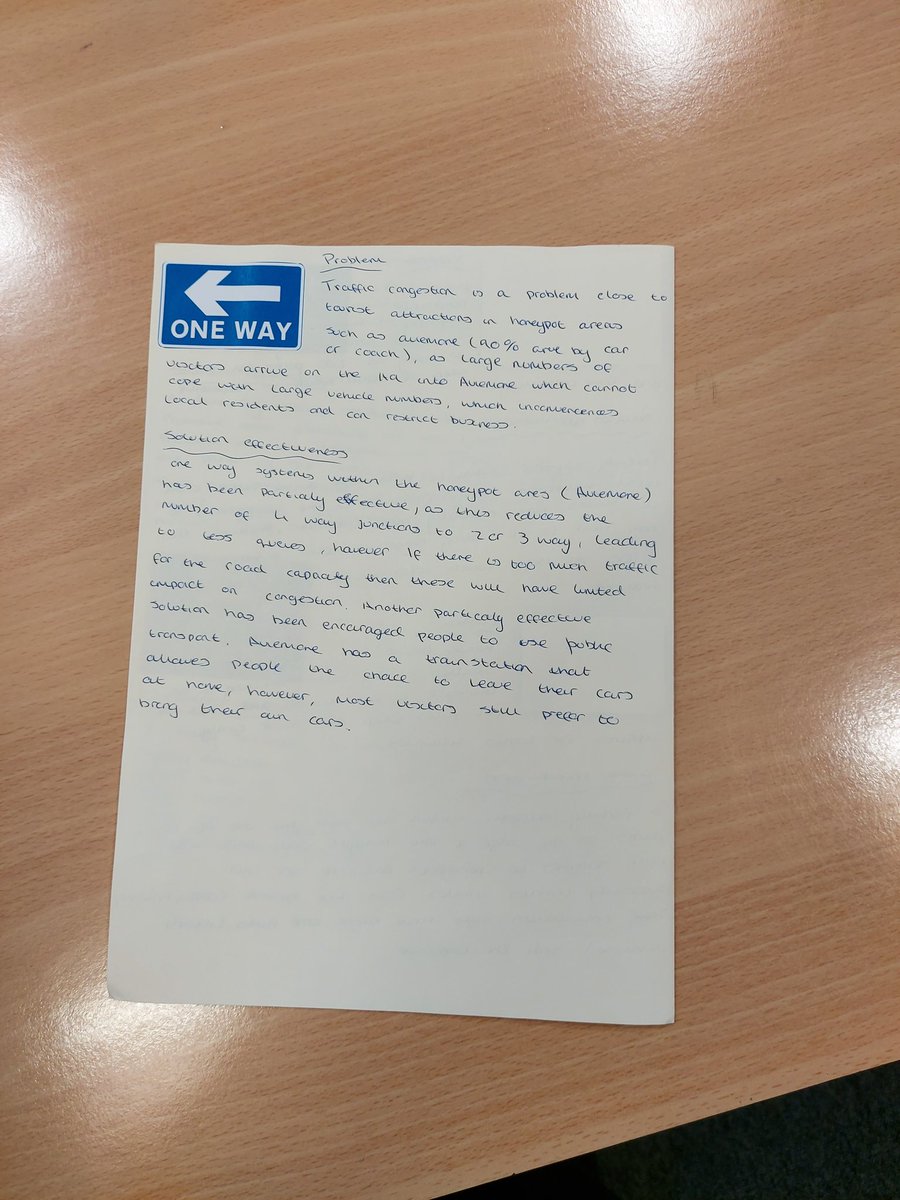 ONE WAY
Problem
Traffic congestion is a problem close to
tourist attractions in honeypot areas
such as aviemore (90% arive by car
or coach), as large numbers of
visitors arrive on the into Aviemore which cannot
cope with large vehicle numbers, which inconvencences
Local residents and can restrict business.
Solution effectiveness
one way systems within the honeypot area (Aviemore)
has been particaly effective, as this reduces the
number of 4 way junctions to 2 or 3 way, leading
to less queues, however if there is too much traffic
for the road capacity then these will have limited
impact on congestion. Another particaly effective
solution has been encouraged people to use public
transport. Aviemore has a trainstation that
allows people the choice to leave their cars
at home, however, most visitors still prefer to
bring their own cars.